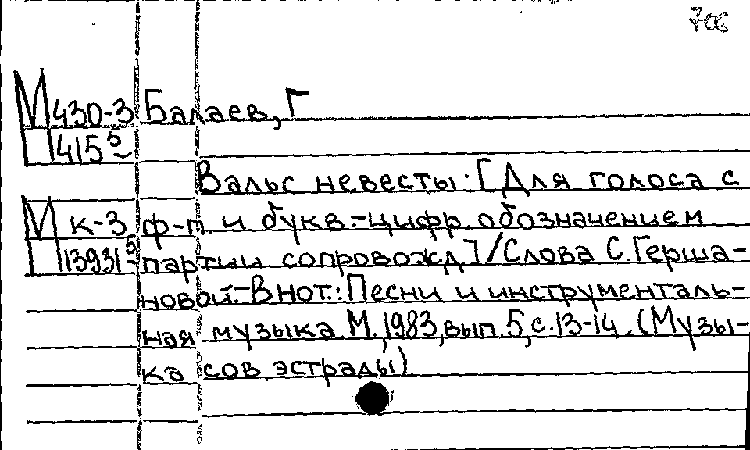 706
М430-3 Балаев, Г
415 5
Вальс невесты: [Для голоса с
М к-3 ф-п. и букв.-цифр. обозначением
13931 5 партии сопровожд.]/Слова С. Герша-
новой-В нот.: Песни и инструменталь-
ная музыка. М., 1983, вып. 5, с. 13-14. (Музы-
ка сов. эстрады)